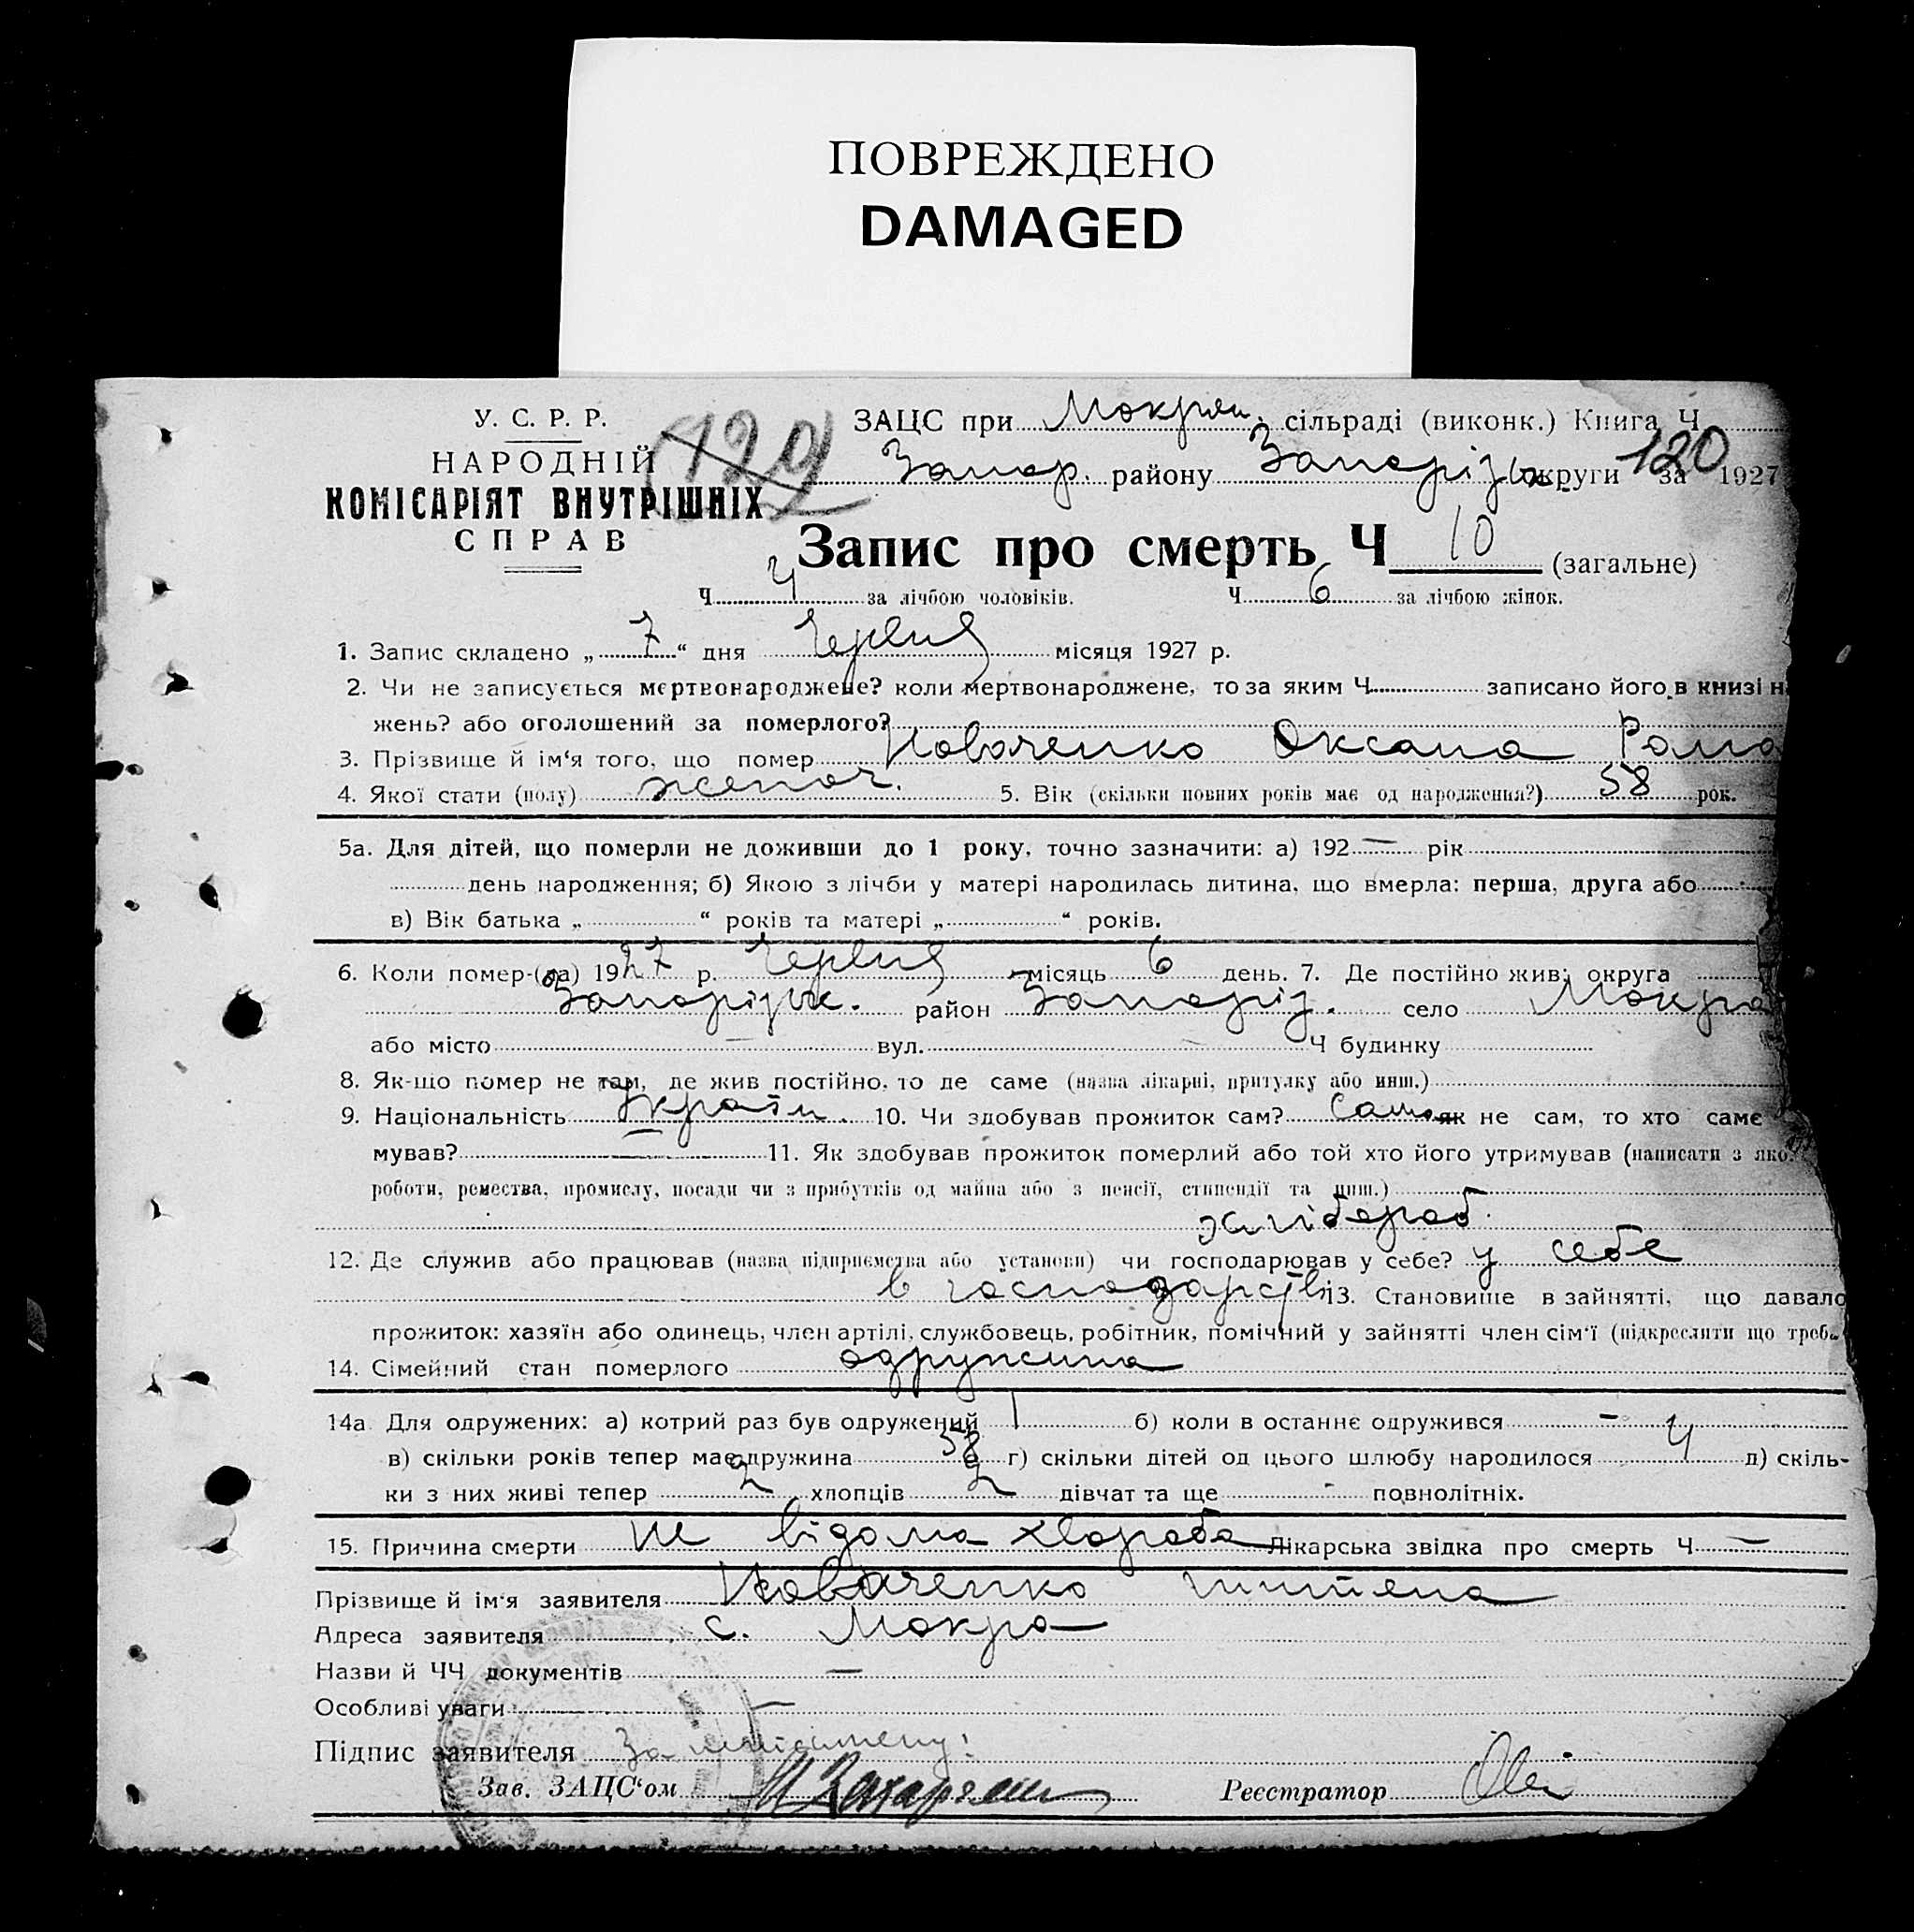 ПОВРЕЖДЕНО
DAMAGED
У. С. Р. Р.
НАРОДНІЙ
КОМІСАРІЯТ ВНУТРІШНІХ
СПРАВ
129
ЗАЦС при Мокрян. сільраді (виконк.) Книга Ч
Запор. району Запорізьк. округи за 1927
120
Запис про смерть Ч 10 (загальне)
Ч 4 за лічбою чоловіків. Ч 6 за лічбою жінок.
1. Запис складено „ 7 “ дня Червня місяця 1927 р.
2. Чи не записується мертвонароджене? коли мертвонароджене, то за яким Ч записано його в книзі н
жень? або оголошений за померлого?
3. Прізвище й ім‘я того, що помер Коваченко Оксана Рома
4. Якої стати (полу) жіноч. 5. Вік (скільки повних років має од народження?) 58 рок.
5а. Для дітей, що померли не доживши до 1 року, точно зазначити: а) 192 — рік
день народження; б) Якою з лічби у матері народилась дитина, що вмерла: перша, друга або
в) Вік батька „ “ років та матері „ “ років.
6. Коли помер-(ла) 1927 р. Червня місяць 6 день. 7. Де постійно жив: округа
Запорізьк. район Запоріз. село Мокра
або місто — вул. — Ч будинку
8. Як-що помер не там, де жив постійно, то де саме (назва лікарні, притулку або инш.)
9. Національність Україн. 10. Чи здобував прожиток сам? Сам як не сам, то хто саме
мував? — 11. Як здобував прожиток померлий або той хто його утримував (написати з яко
роботи, ремества, промислу, посади чи з прибутків од майна або з пенсії, стипендії та инш.)
хлібороб.
12. Де служив або працював (назва підприємства або установи) чи господарював у себе? у себе
в господарстві 13. Становище в зайнятті, що давало
прожиток: хазяїн або одинець, член артілі, службовець, робітник, помічний у зайнятті член сім‘ї (підкреслити що треба
14. Сімейний стан померлого одружина
14а Для одружених: а) котрий раз був одружений 1 б) коли в останнє одружився —
в) скільки років тепер має дружина 58 г) скільки дітей од цього шлюбу народилося 4 д) скіль-
ки з них живі тепер 2 хлопців 2 дівчат та ще - повнолітніх.
15. Причина смерти не відома хвороба Лікарська звідка про смерть Ч —
Прізвище й ім‘я заявителя Коваченко
Адреса заявителя с. Мокра
Назви й ЧЧ документів —
Особливі уваги —
Підпис заявителя За
Зав. ЗАЦС‘ом Реєстратор